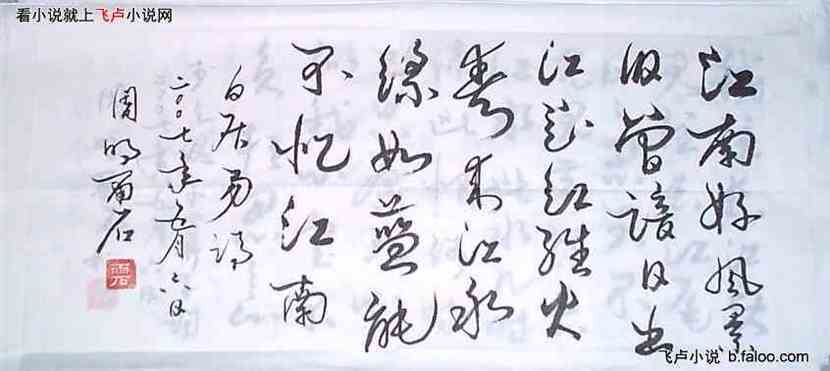 看小说就上飞卢小说网
江南好風景
旧曾諳日出
江花红胜火
春来江水
绿如蓝能
不忆江南
白居易诗
二〇〇七年月六日
周明雨石
雨石
飞卢小说 b.faloo.com